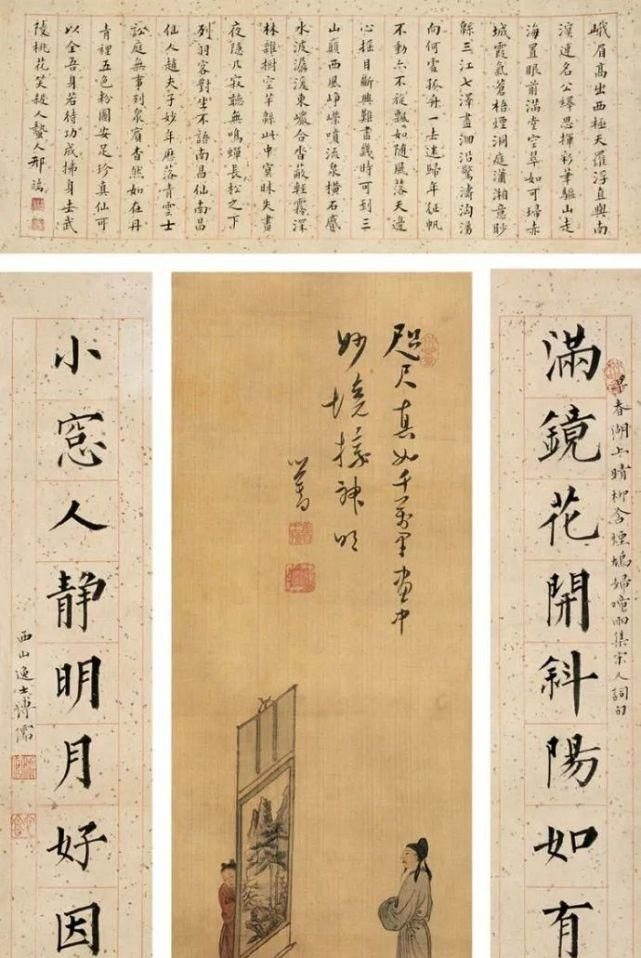 峨眉高出西極天羅浮直與南
溟連名公繹思揮彩筆驅山走
海置眼前滿堂空翠如可掃赤
城霞氣蒼梧煙洞庭瀟湘意眇
緜三江七澤盡洄沿驚濤洶湧
向何處孤舟一去迷歸年征帆
不動亦不旋飄如隨風落天邊
心搖目斷興難盡幾時可到三
山巔西風崢嶸噴流泉橫石蹙
水波潺湲東巖合沓蔽輕霧深
林雜樹空芊緜此中冥昧失晝
夜隱几寂聽無鳴蟬長松之下
列羽客對坐不語南昌仙南昌
仙人趙夫子妙年歷落青雲士
訟庭無事列眾賓杳然如在丹
青裡五色粉圖安足珍真仙可
以全吾身若待功成拂身去武
陵桃花笑殺人蟄人邢端
春湖上晴柳含煙鳩婦噎雨集宋人詞句
滿鏡花開斜陽如有
咫尺真如千萬里畫中
妙境擬神明
心畬
小窓人静明月好因
西山逸士溥儒